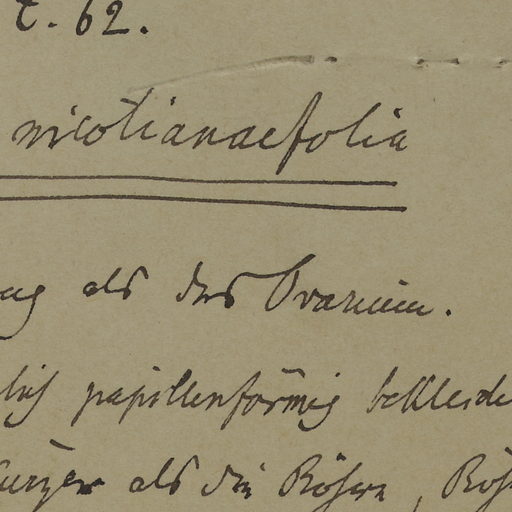 t. 62.
nicotianaefolia
ng als das Ovarium.
lich papillenförmig bekleide
kürzer als die Röhre, Röh